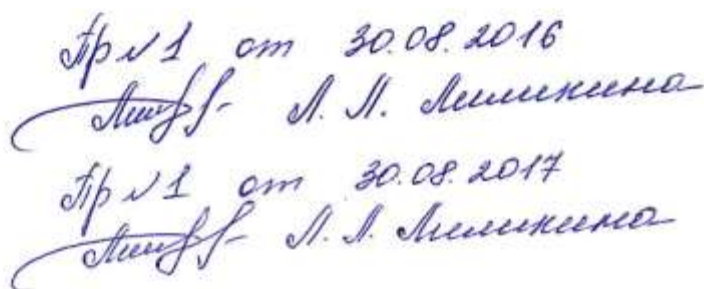 Пр №1 от 30.08.2016
Л. П. Лиликина
Пр №1 от 30.08.2017
Л. П. Лиликина